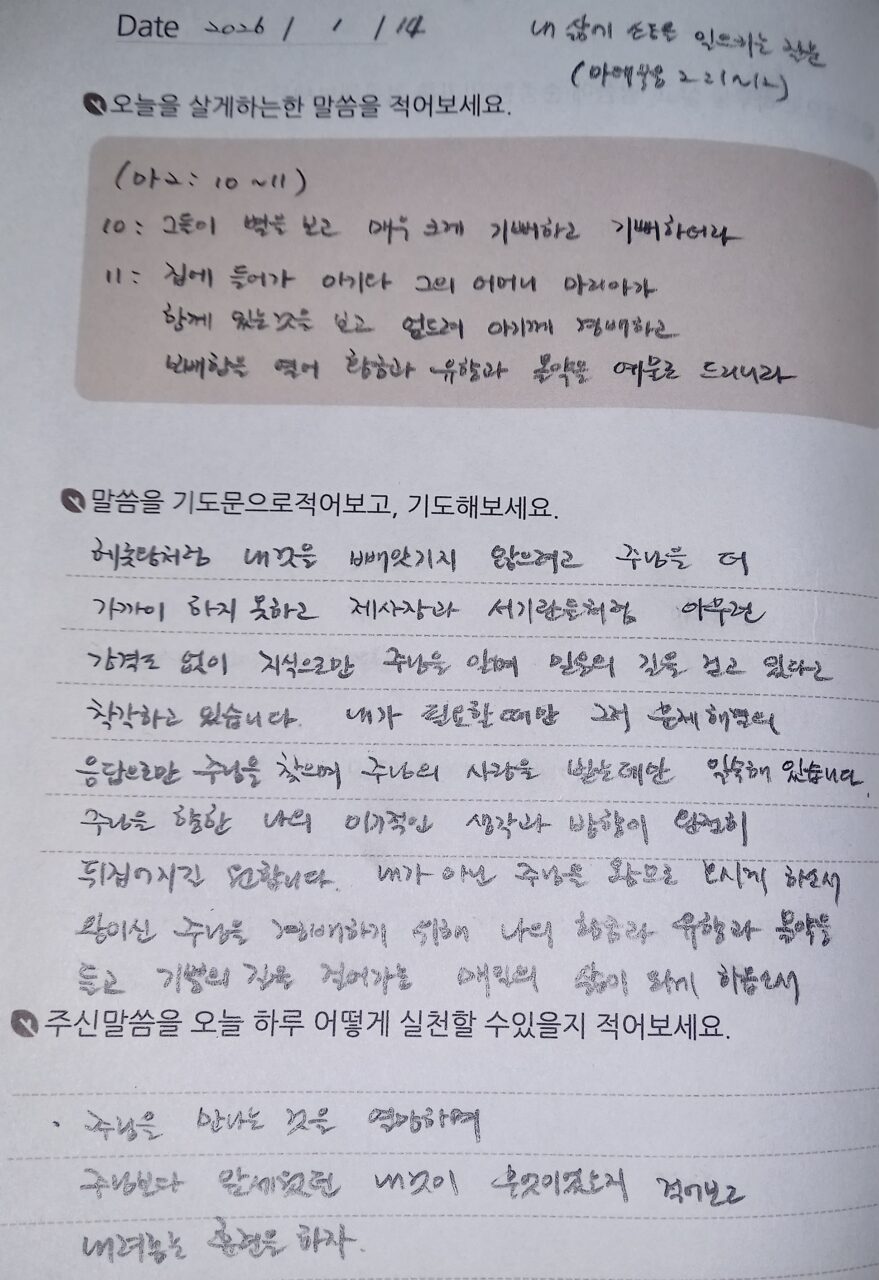 Date 2026 / 1 / 14
내 삶에 소동을 일으키는 질문
(마태복음 2:1~12)
오늘을 살게하는한 말씀을 적어보세요.
(마2: 10~11)
10: 그들이 별을 보고 매우 크게 기뻐하고 기뻐하더라
11: 집에 들어가 아기와 그의 어머니 마리아가
함께 있는것을 보고 엎드려 아기께 경배하고
보배합을 열어 황금과 유향과 몰약을 예물로 드리니라
말씀을 기도문으로적어보고, 기도해보세요.
헤롯왕처럼 내것을 빼앗기지 않으려고 주님을 더
가까이 하지 못하고 제사장과 서기관들처럼 아무런
감격도 없이 지식으로만 주님을 알며 믿음의 길을 걷고 있다고
착각하고 있습니다. 내가 필요할때만 그저 문제해결의
응답으로만 주님을 찾으며 주님의 사랑을 받는데만 익숙해 있습니다.
주님을 향한 나의 이기적인 생각과 방향이 완전히
뒤집어지길 원합니다. 내가 아닌 주님을 왕으로 모시게 하소서
왕이신 주님을 경배하기 위해 나의 황금과 유향과 몰약을
들고 기쁨의 길을 걸어가는 매일의 삶이 되게 하옵소서
주신말씀을 오늘 하루 어떻게 실천할 수있을지 적어보세요.
· 주님을 만나는 것을 열망하며
주님보다 앞세웠던 내것이 무엇이었는지 적어보고
내려놓는 훈련을 하자.